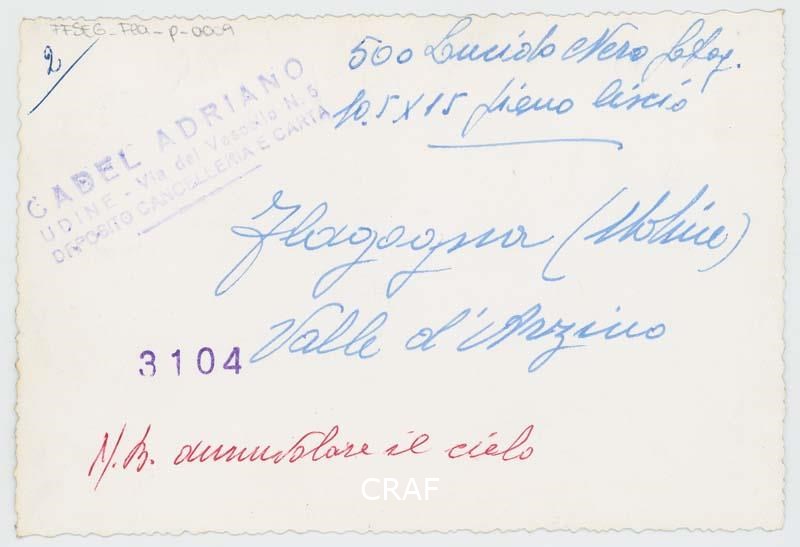 77SEG-Fla-p-0009
2
500 Lucido Nero fotog.
10.5 X 15 pieno liscio
CADEL ADRIANO
UDINE - Via del Vascello N. 5
DEPOSITO CANCELLERIA E CARTA
Flagogna (Udine)
Valle d'Arzino
3104
N.B. annuvolare il cielo
CRAF